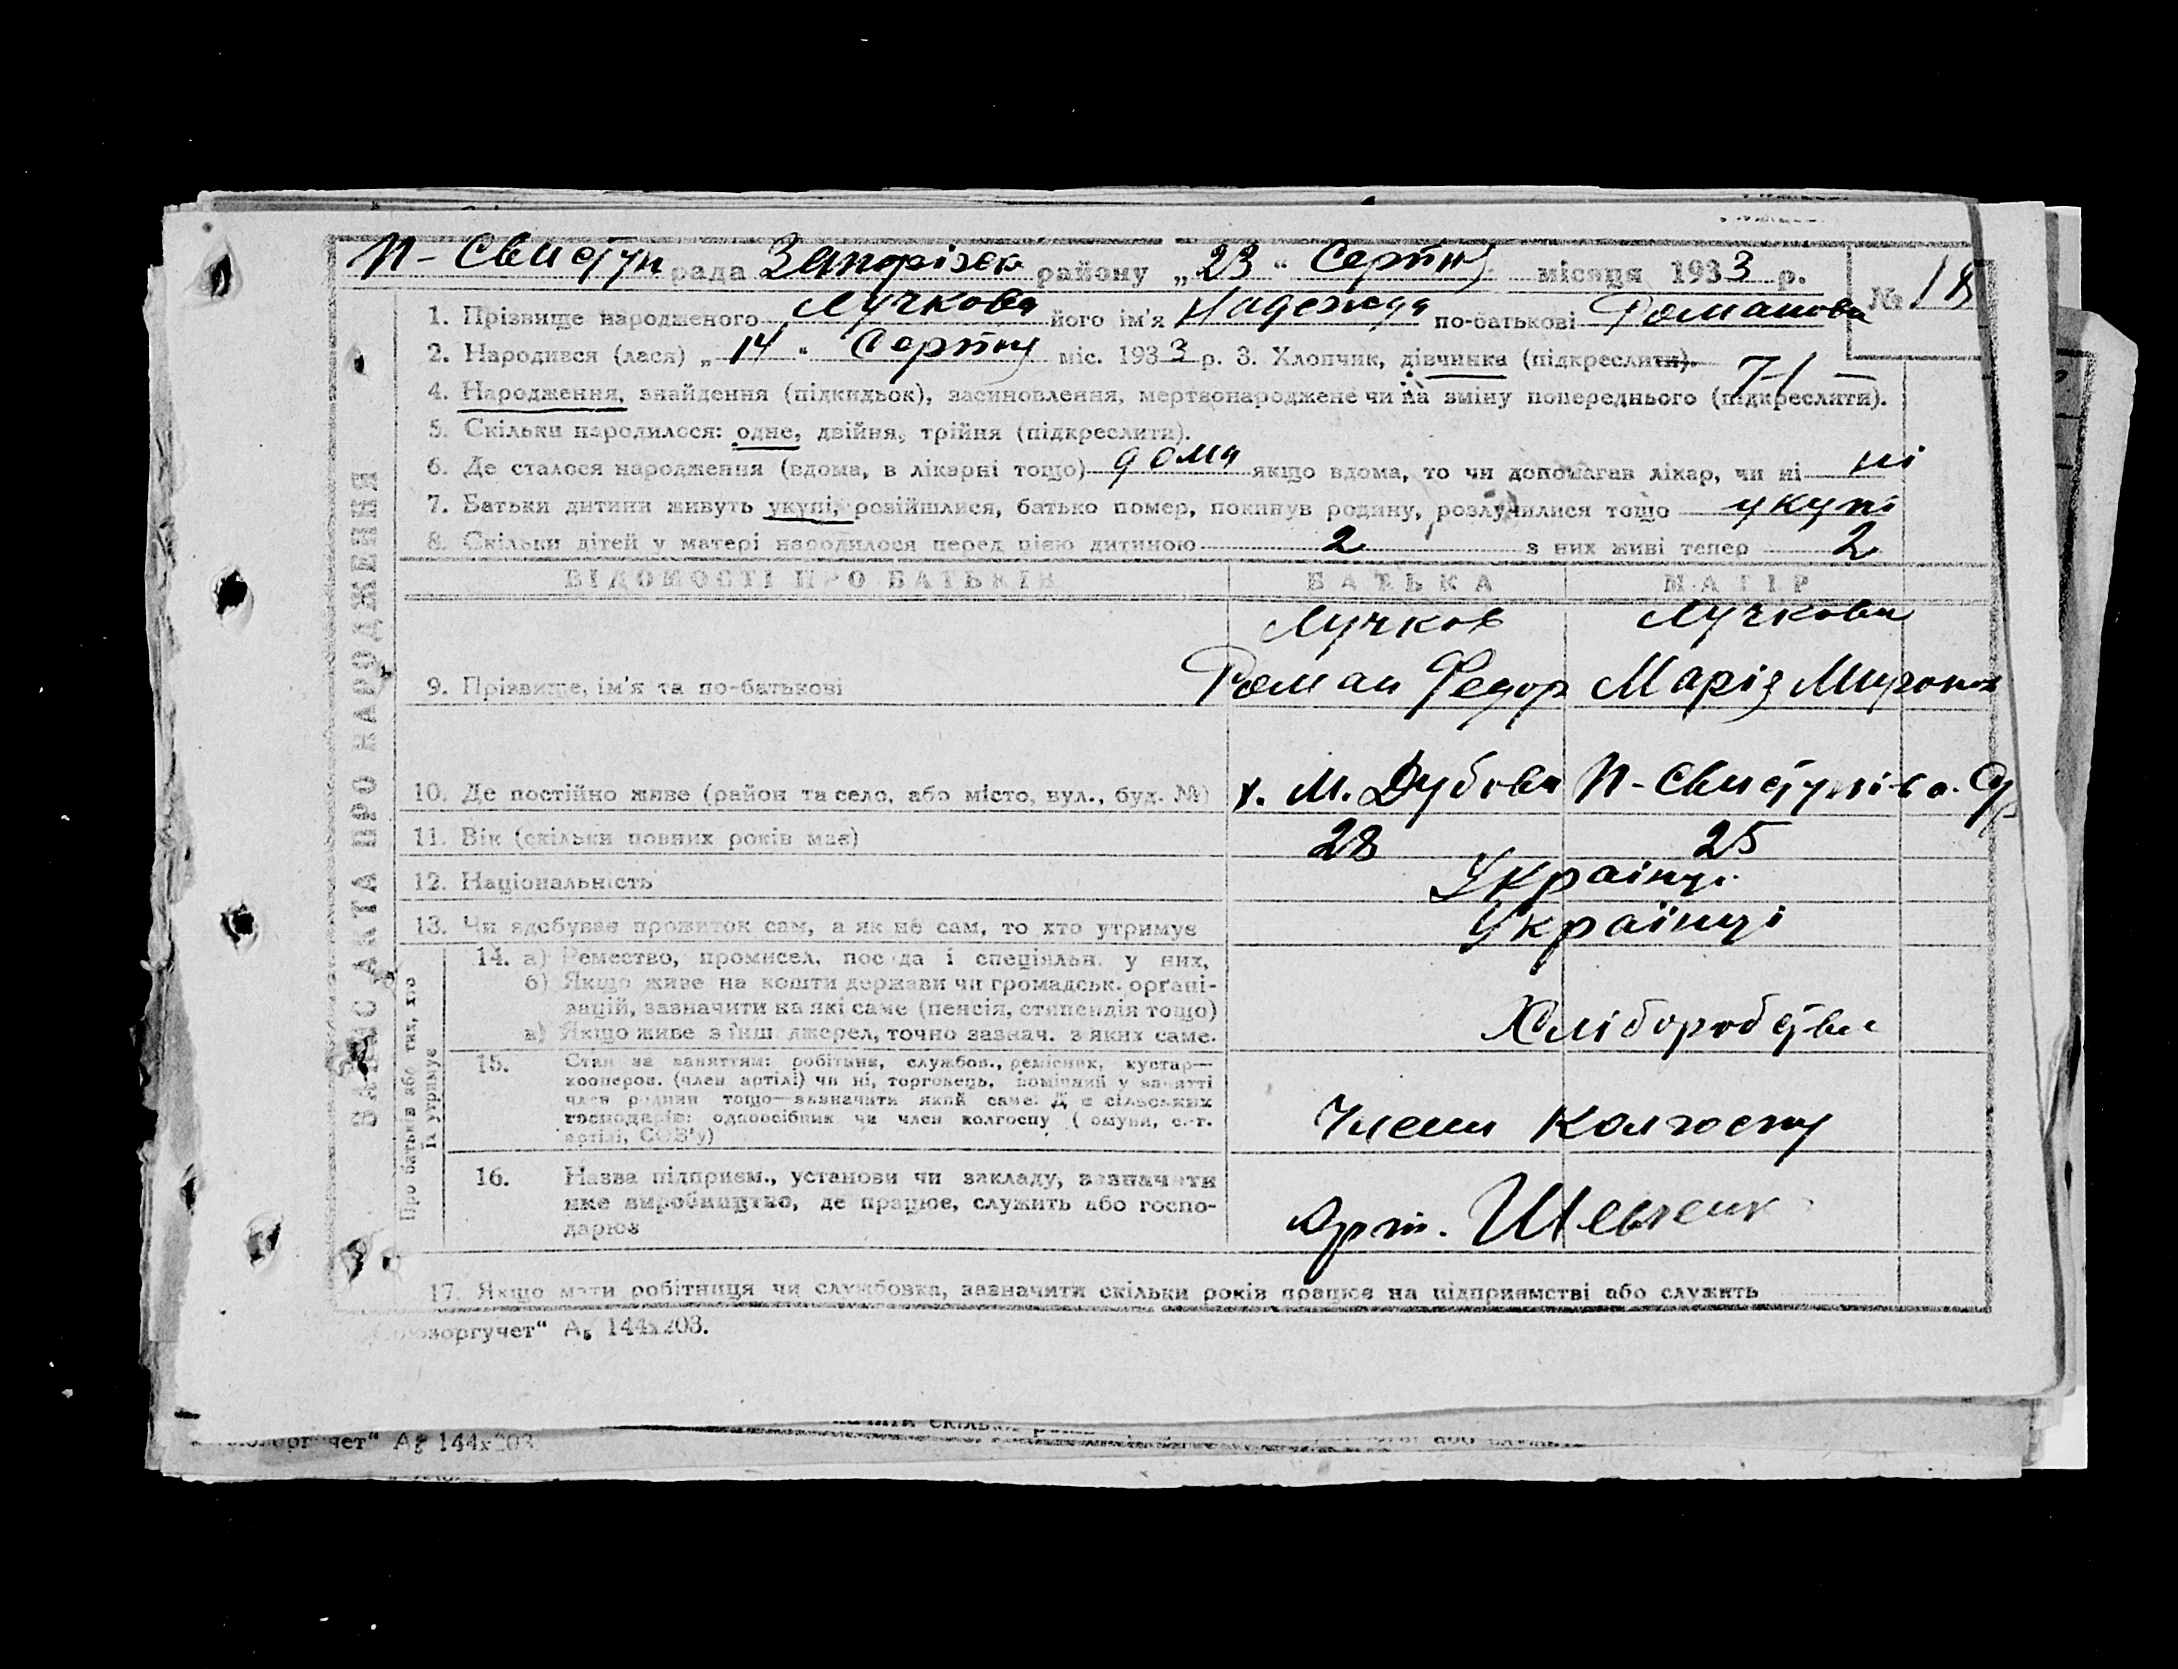 П-Свистун рада Запорізьк району „23“ Серпня місяця 1933 р. № 18
1. Прізвище народженого Лучкова його ім'я Надежда по-батькові Романовн
2. Народився (лася) „14“ Серпня міс. 1933 р. 3. Хлопчик, дівчинка (підкреслити).
4. Народження, знайдення (підкидьок), засиновлення, мертвонароджене чи на зміну попереднього (підкреслити).
5. Скільки народилося: одне, двійня, трійня (підкреслити).
6. Де сталося народження (вдома, в лікарні тощо) дома якщо вдома, то чи допомагав лікар, чи ні ні
7. Батьки дитини живуть укупі, розійшлися, батько помер, покинув родину, розлучилися тощо укупі
8. Скільки дітей у матері народилося перед цією дитиною 2 з них живі тепер 2
ВІДОМОСТІ ПРО БАТЬКІВ БАТЬКА МАТІР
Лучков Лучкова
9. Прізвище, ім'я та по-батькові Роман Федор Марія Мирон
10. Де постійно живе (район та село, або місто, вул., буд. №) х. М. Дубова П-Свистунівa
11. Вік (скільки повних років має) 28 25
12. Національність Украінці
13. Чи здобуває прожиток сам, а як не сам, то хто утримує Українці
14. а) Ремество, промисел, посада і спеціяльн. у них,
б) Якщо живе на кошти держави чи громадськ. органі-
зацій, зазначити на які саме (пенсія, стипендія тощо)
в) Якщо живе з інш джерел, точно зазнач. з яких саме.
Хліборобств
15. Стан за заняттям: робітник, службов., ремісник, кустар—
кооперов. (член артілі) чи ні, торговець, помічний у занятті
член родини тощо—зазначити який саме.
господарів: одноосібник чи член колгоспу
артілі, СОЗ'у)
Члени колгоспу
16. Назва підприєм., установи чи закладу, зазначити
яке виробництво, де працює, служить або госпо-
дарює
Арт. Шевченк
17. Якщо мати робітниця чи службовка, зазначити скільки років працює на підприємстві або служить
144x203.
ЗАПИС АКТА ПРО НАРОДЖЕННЯ
Про батьків або тих, хто
їх утримує
144x203